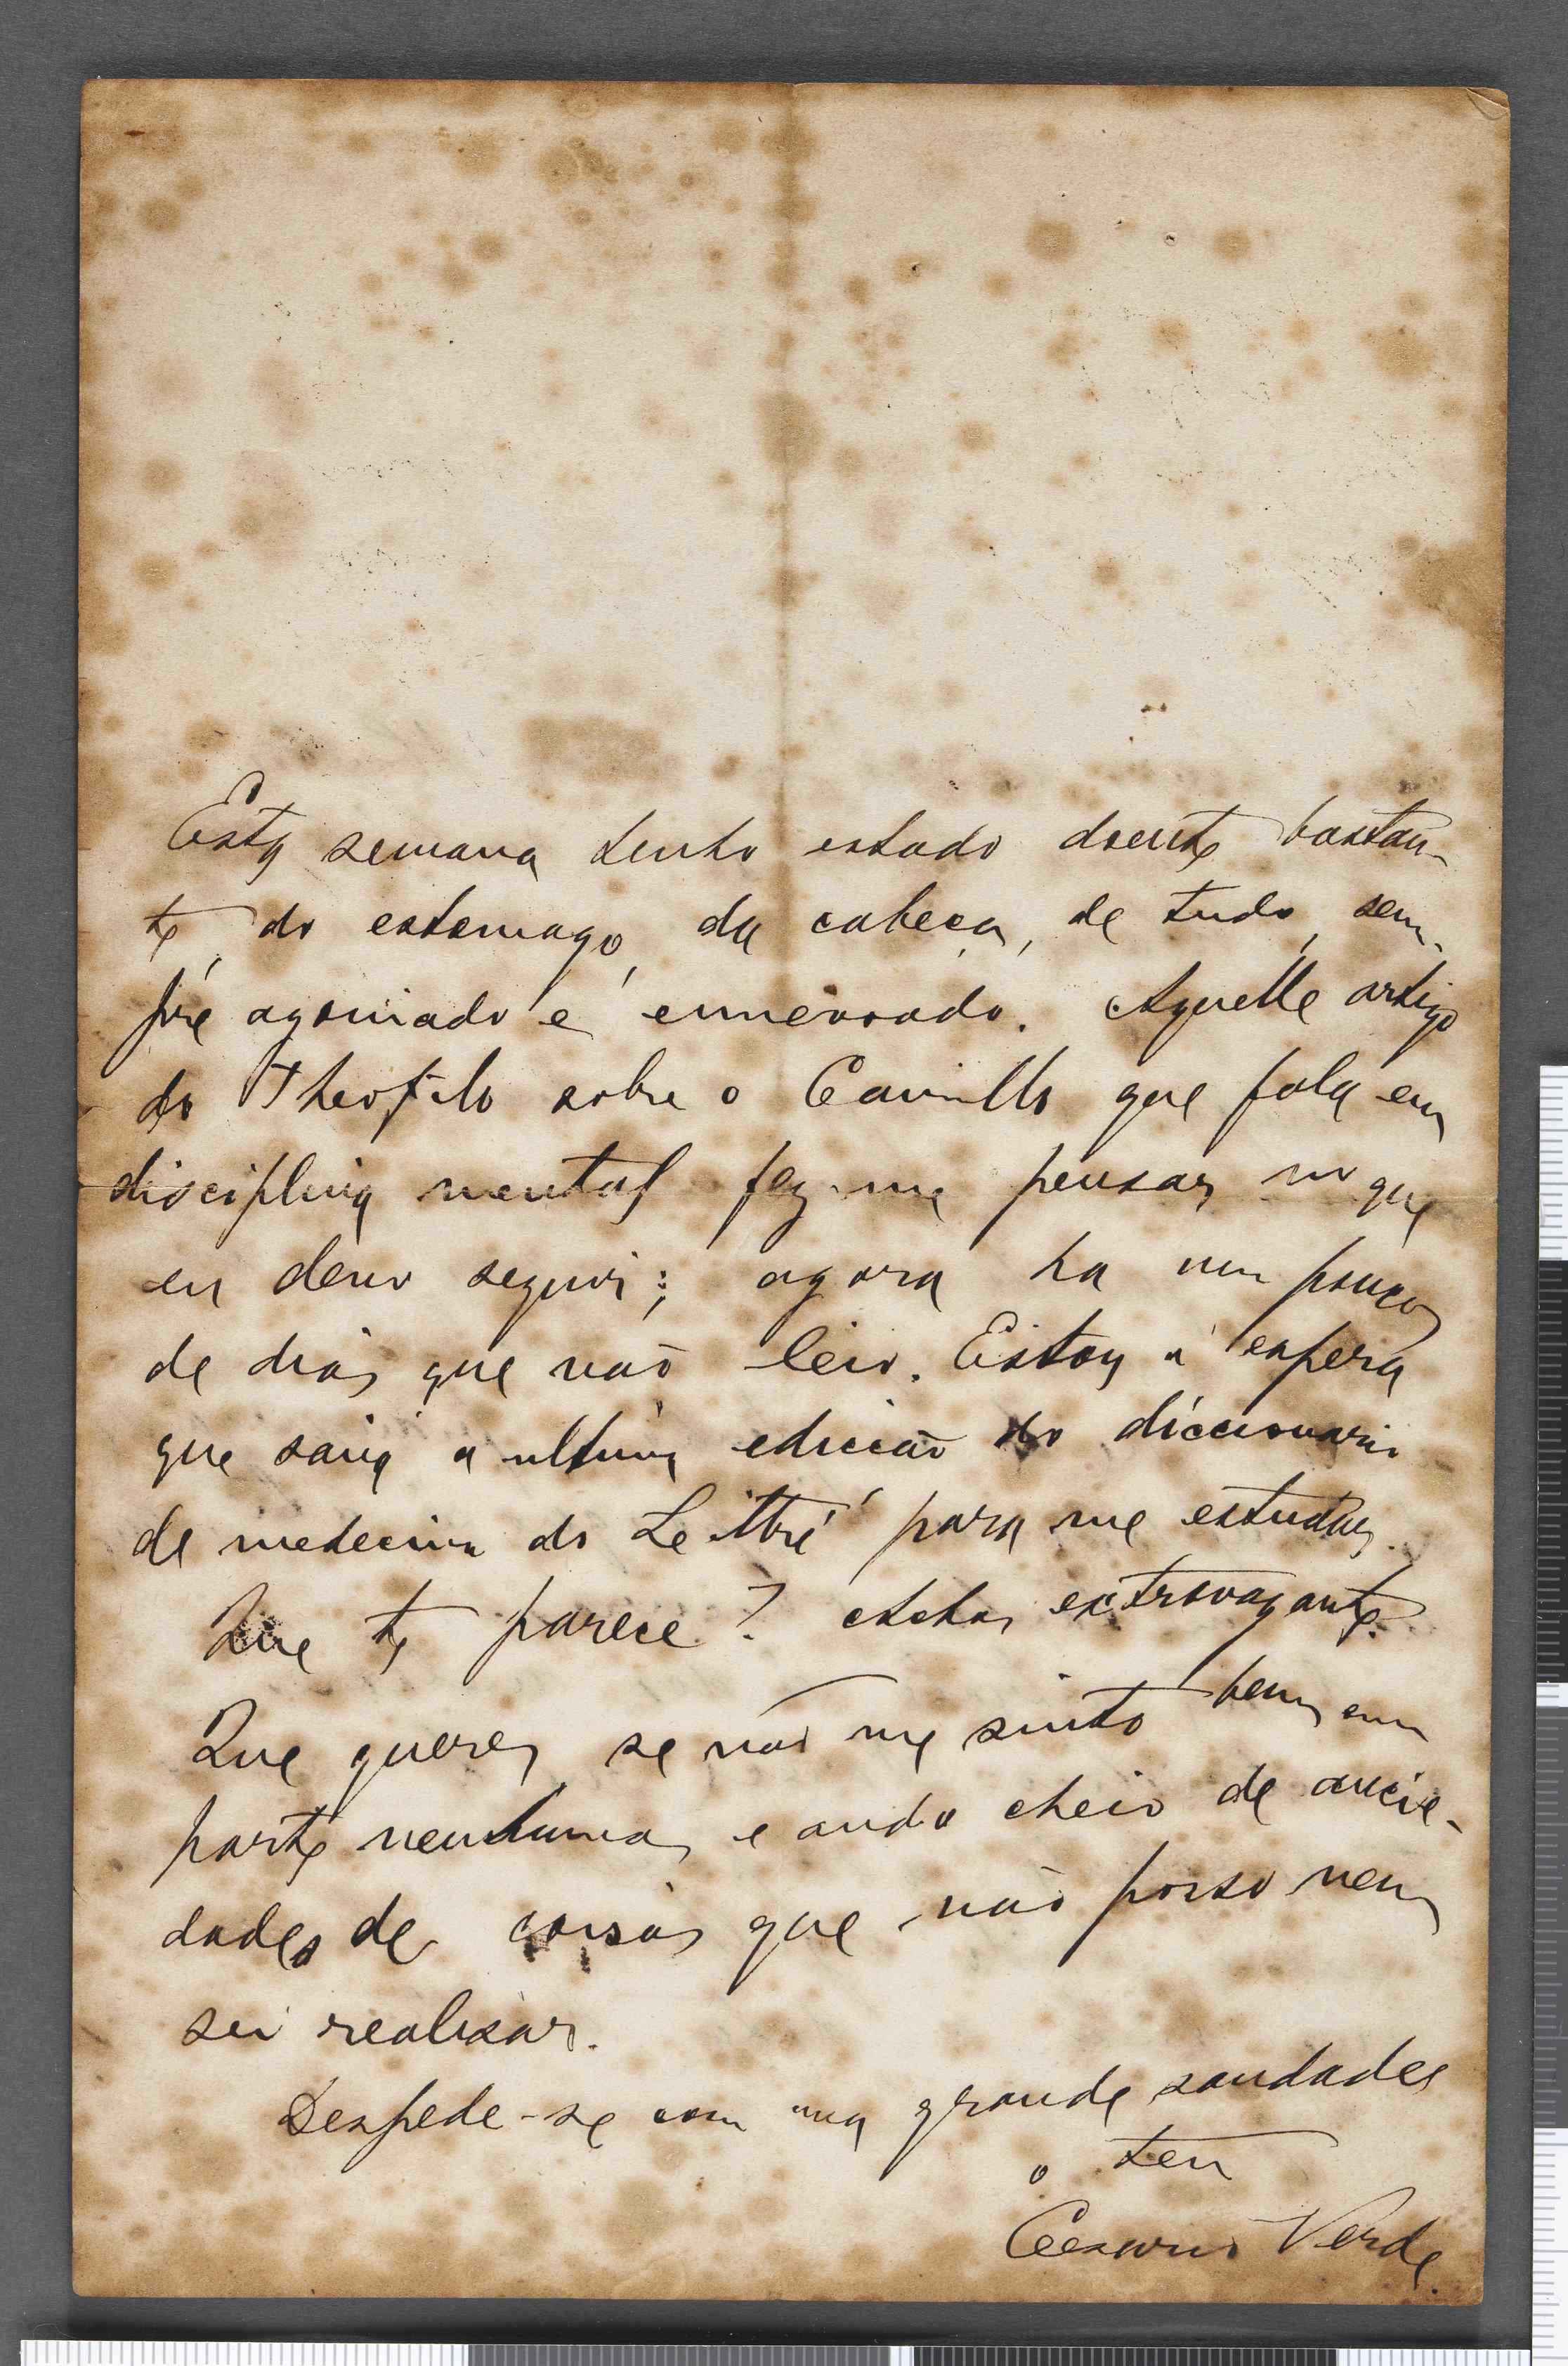 Esta semana tenho estado doente bastan-
te do estomago, da cabeça, de tudo, sem-
pre agoniado e ennervado. Aquelle artigo
do Theofilo sobre o Camillo que fala em
disciplina mental fez-me pensar no que
eu devo seguir; agora ha um poucos
de dias que não leio. Estou á espera
que saia a ultima edicção do diccionario
de medecina do Littré para me estudar.
Que te parece? Achas extravagante?
Que queres, se não me sinto bem em
parte nenhuma, e ando cheio de ancie-
dades de coisas que não posso nem
sei realisar.
Despede-se com uma grande saudades
o teu
Cesario Verde.